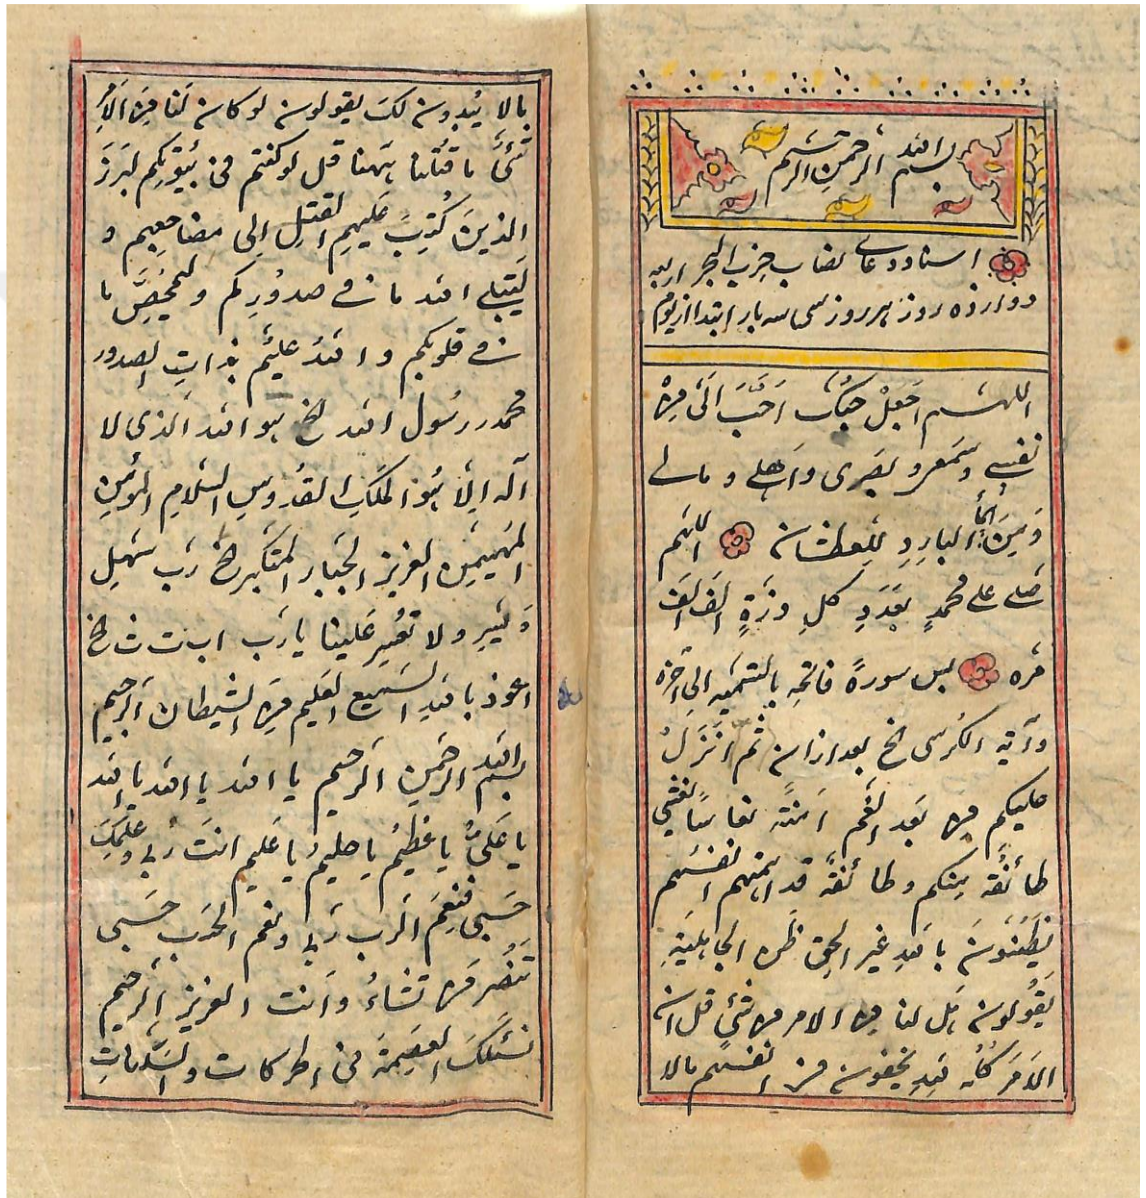 بسم الله الرحمن الرحیم
اسناد دعاے نصاب حزب البحر اربعہ
دوازده روز ہر روز سی سہ بار ابتدا از یوم
اللہم اجعل حبک احب الیّ من
نفسے وسمعی و بصری واہلے و مالے
ومن الماء البارد للعطشان اللہم
صلے علے محمدٍ بعددِ کلِ ذرةٍ الف الف
مره پس سورة فاتحہ بالتسمیہ الی آخره
وآیة الکرسی الخ بعد ازان ثم انزل
علیکم من بعد الغم امنة نعاسا یغشی
طائفة منکم وطائفة قد اہمتہم انفسہم
یظنون باللہ غیر الحق ظن الجاہلیة
یقولون ہل لنا من الامر من شیٔ قل ان
الامر کلہ للہ یخفون فی انفسہم مالا
مالا یبدون لک یقولون لو کان لنا من الامر
شیٔ ما قتلنا ہہنا قل لو کنتم فی بیوتکم لبرز
الذین کتب علیہم القتل الی مضاجعہم و
لیبتلی اللہ ما فے صدورکم ولیمحص ما
فے قلوبکم و اللہ علیم بذات الصدور
محمد رسول اللہ الخ ہو اللہ الذی لا
آلہ الا ہو الملک القدوس السلام المؤمن
المہیمن العزیز الجبار المتکبر الخ رب سہل
ویسر ولا تعسر علینا یا رب ا ب ت ث الخ
اعوذ باللہ السمیع العلیم من الشیطان الرجیم
بسم اللہ الرحمن الرحیم یا اللہ یا اللہ یا اللہ
یا علی یا عظیم یا حلیم یا علیم انت ربی وعلمک
حسبی فنعم الرب ربی ونعم الحسب حسبی
تنصر من تشاء وانت العزیز الرحیم
نسئلک العصمة فی الحرکات والسکنات